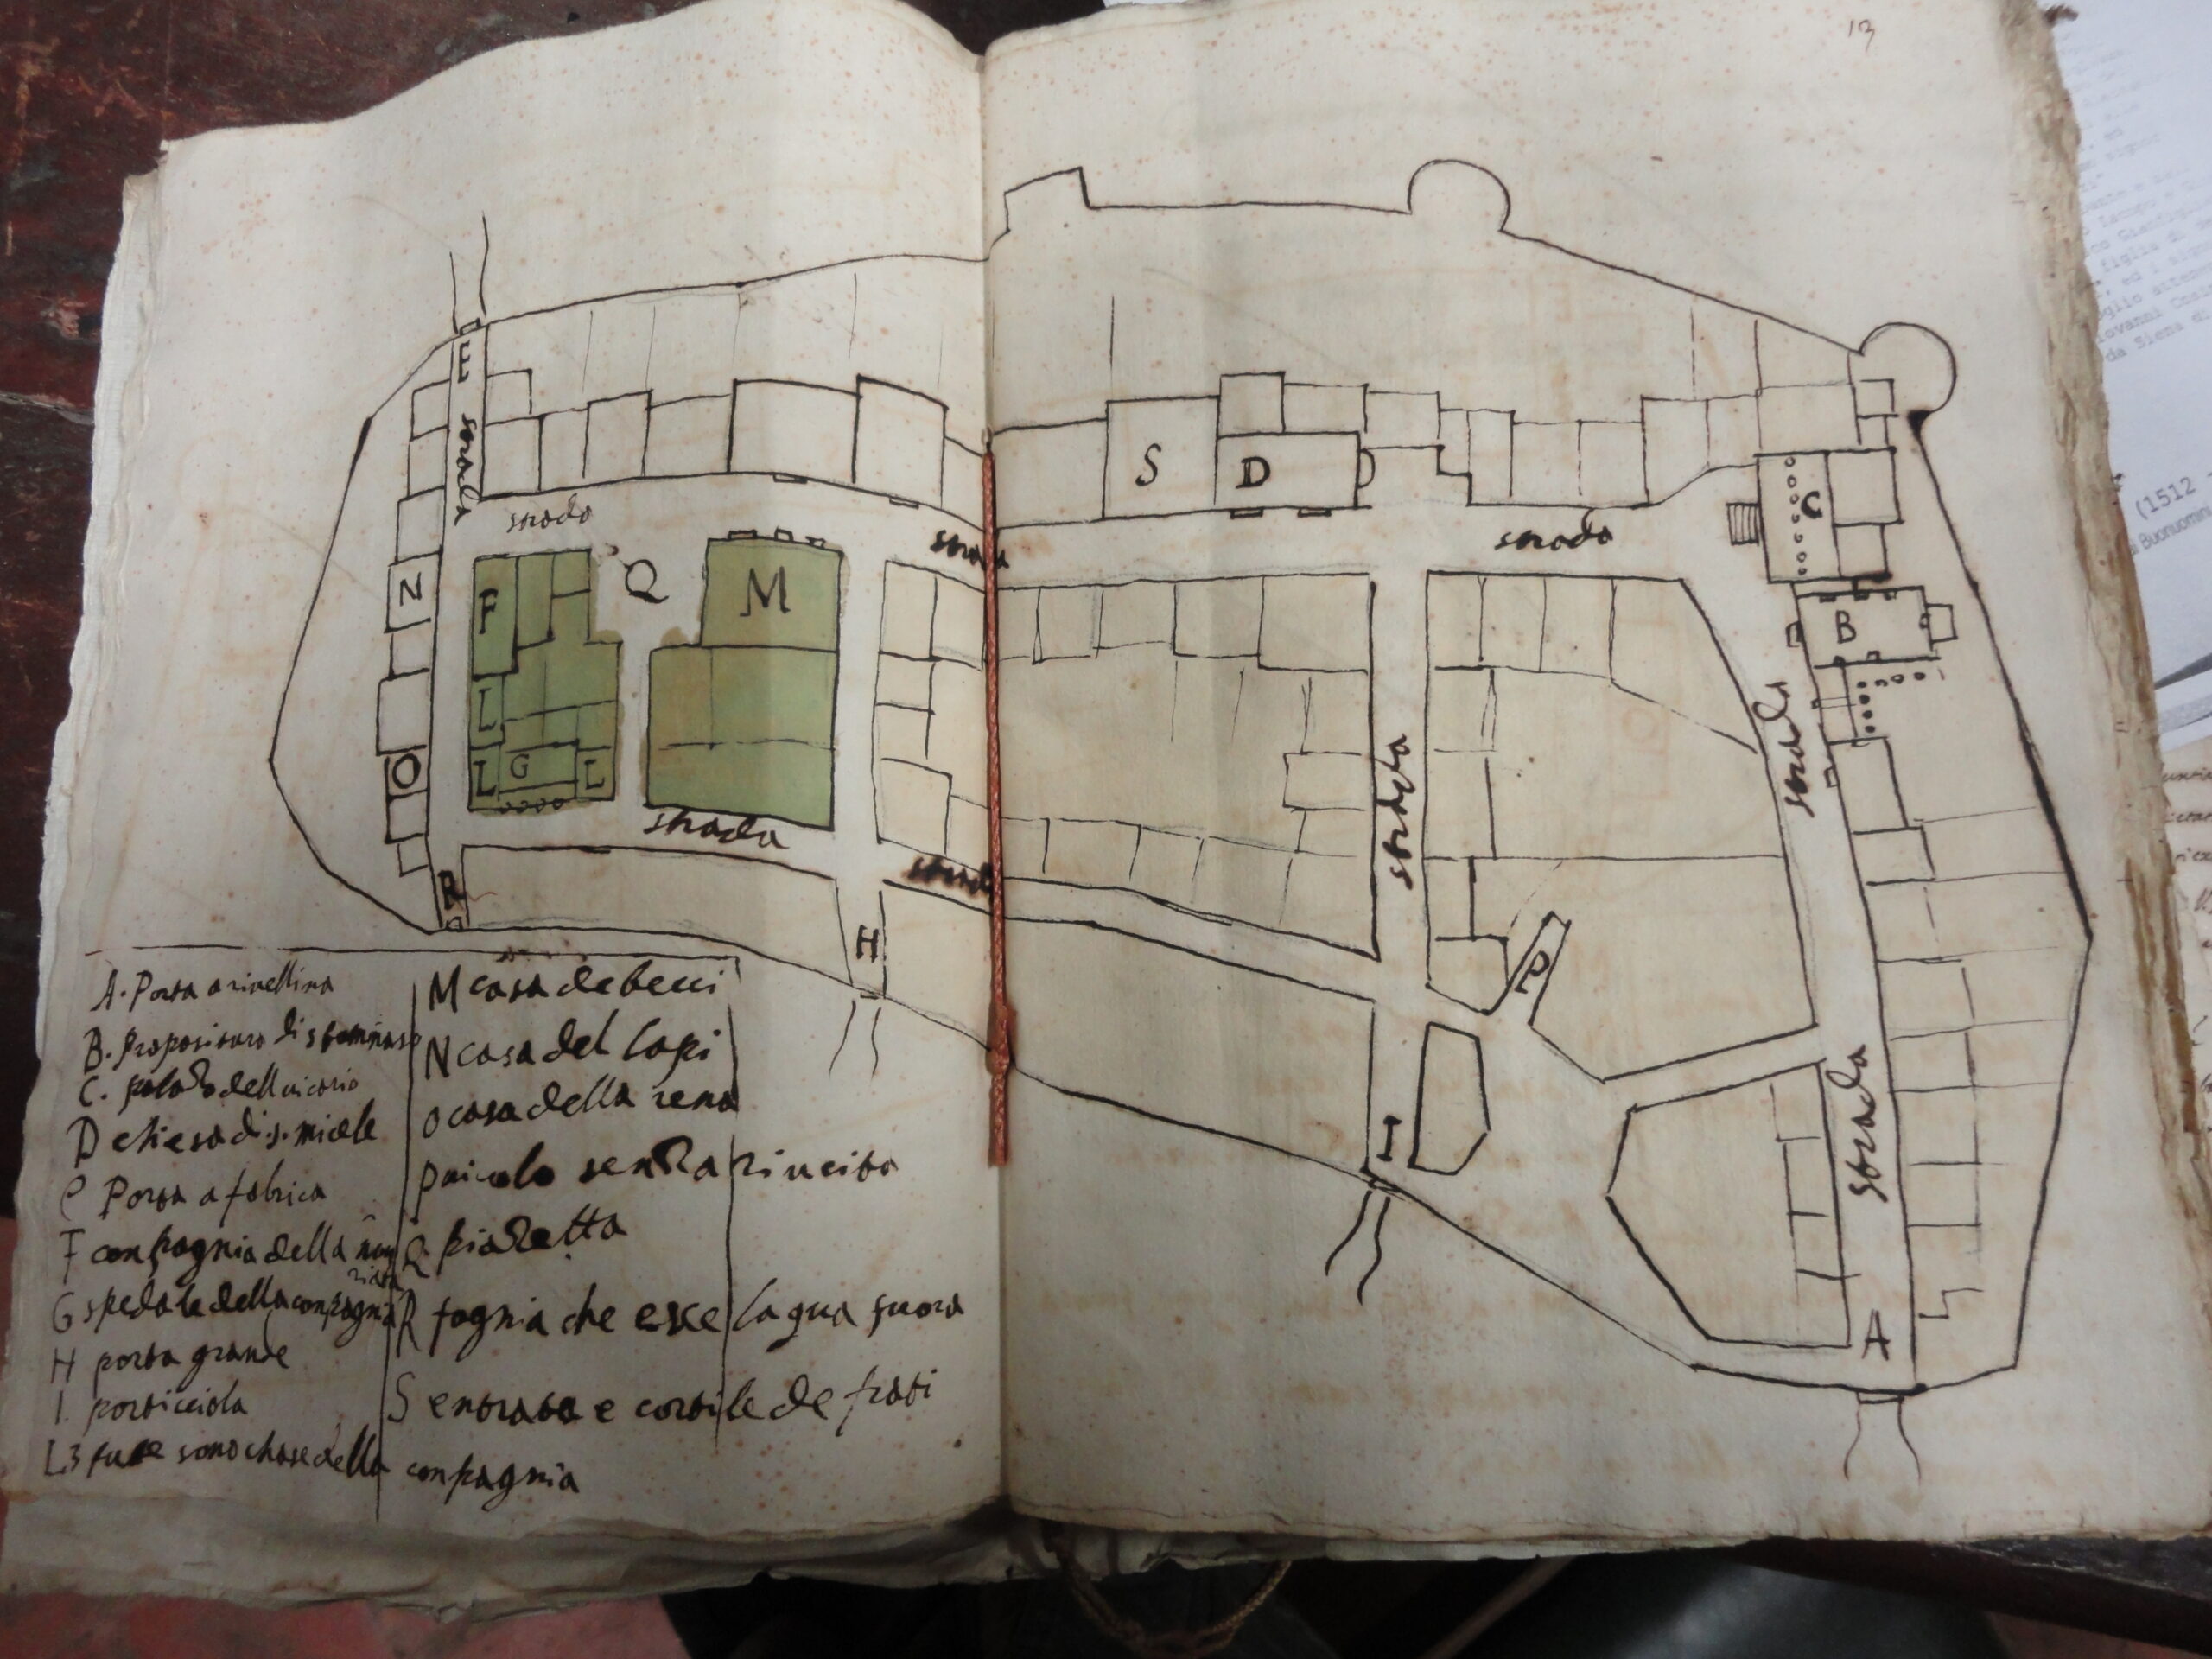 13
E
strada
strada
strada
S
D
strada
C
N
F
Q
M
B
L
O
L
G
L
strada
strada
strada
strada
R
H
P
I
strada
A
A. Porta a rivellina
B. propositura di s tommaso
C. palazo dell vicario
D chiesa di s. michele
E Porta a fabrica
F conpagnia della nun
ziata
G spedale della conpagnia
H porta grande
I. porticciola
L.3 tutte sono chase della conpagnia
M casa de becci
N casa del lapi
O casa della rena
P vicolo senza riuscita
Q piazetta
R fognia che esce lagua fuora
S entrata e cortile de frati
(1512
Buonuomini
da Siena